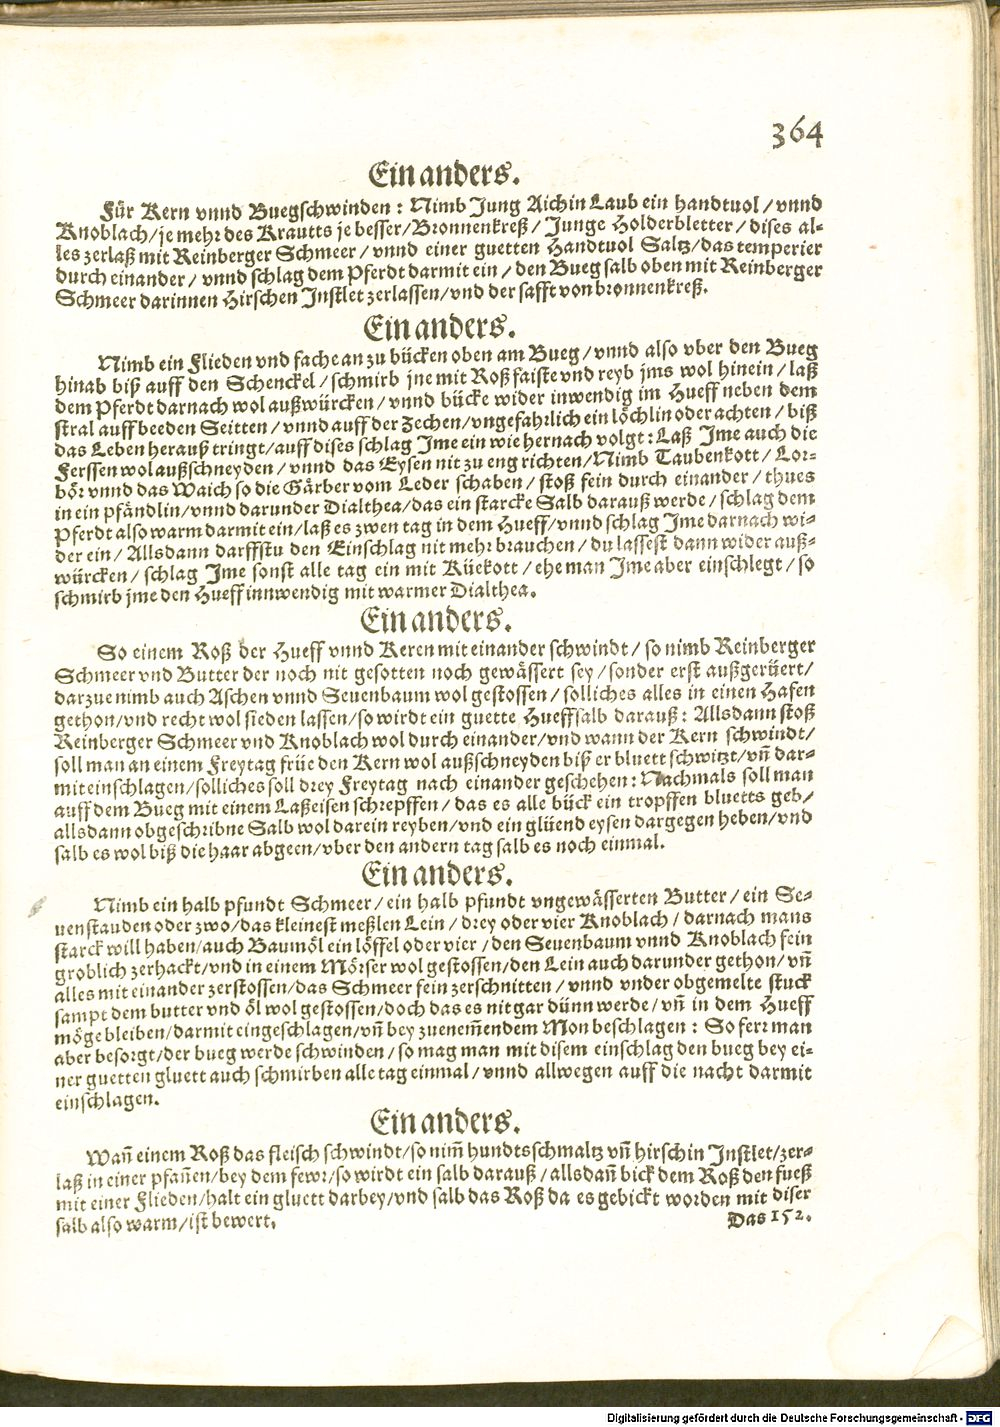 364
Ein anders.
Für Kern vnnd Buegschwinden: Nimb Jung Aichin Laub ein handtuol / vnnd
Knoblach / je mehr des Krautts je besser / Bronnenkreß / Junge Holderbletter / dises al-
les zerlaß mit Reinberger Schmeer / vnnd einer guetten Handtuol Saltz / das temperier
durch einander / vnnd schlag dem Pferdt darmit ein / den Bueg salb oben mit Reinberger
Schmeer darinnen Hirschen Jnstlet zerlassen / vnd der safft von bronnenkreß.
Ein anders.
Nimb ein Flieden vnd fache an zu bücken oben am Bueg / vnnd also vber den Bueg
hinab biß auff den Schenckel / schmirb jne mit Roß faiste vnd reyb jms wol hinein / laß
dem Pferdt darnach wol außwürcken / vnnd bücke wider inwendig im Hueff neben dem
stral auff beeden Seitten / vnnd auff der Zechen / vngefahrlich ein löchlin oder achten / biß
das Leben herauß tringt / auff dises schlag Jme ein wie hernach volgt: Laß Jme auch die
Ferssen wol außschneyden / vnnd das Eysen nit zu eng richten / Nimb Taubenkott / Lor-
bör vnnd das Waich so die Gärber vom Leder schaben / stoß fein durch einander / thues
in ein pfändlin / vnnd darunder Dialthea / das ein starcke Salb darauß werde / schlag dem
Pferdt also warm darmit ein / laß es zwen tag in dem Hueff / vnnd schlag Jme darnach wi-
der ein / Allsdann darffstu den Einschlag nit mehr brauchen / du lassest dann wider auß-
würcken / schlag Jme sonst alle tag ein mit Küekott / ehe man Jme aber einschlegt / so
schmirb jme den Hueff innwendig mit warmer Dialthea.
Ein anders.
So einem Roß der Hueff vnnd Keren mit einander schwindt / so nimb Reinberger
Schmeer vnd Butter der noch nit gesotten noch gewässert sey / sonder erst außgerüert /
darzue nimb auch Aschen vnnd Seuenbaum wol gestossen / solliches alles in einen Hafen
gethon / vnd recht wol sieden lassen / so wirdt ein guette Hueffsalb darauß: Allsdann stoß
Reinberger Schmeer vnd Knoblach wol durch einander / vnd wann der Kern schwindt /
soll man an einem Freytag früe den Kern wol außschneyden biß er bluett schwitzt / vñ dar-
mit einschlagen / solliches soll drey Freytag nach einander geschehen: Nachmals soll man
auff dem Bueg mit einem Laßeisen schrepffen / das es alle bück ein tropffen bluetts geb /
allsdann obgeschribne Salb wol darein reyben / vnd ein glüend eysen dargegen heben / vnd
salb es wol biß die haar abgeen / vber den andern tag salb es noch einmal.
Ein anders.
Nimb ein halb pfundt Schmeer / ein halb pfundt vngewässerten Butter / ein Se-
uenstauden oder zwo / das kleinest meßlen Lein / drey oder vier Knoblach / darnach mans
starck will haben / auch Baumöl ein löffel oder vier / den Seuenbaum vnnd Knoblach fein
groblich zerhackt / vnd in einem Mörser wol gestossen / den Lein auch darunder gethon / vñ
alles mit einander zerstossen / das Schmeer fein zerschnitten / vnnd vnder obgemelte stuck
sampt dem butter vnd öl wol gestossen / doch das es nit gar dünn werde / vñ in dem Hueff
möge bleiben / darmit eingeschlagen / vñ bey zueneem̃endem Mon beschlagen: So ferr man
aber besorgt / der bueg werde schwinden / so mag man mit disem einschlag den bueg bey ei-
ner guetten gluett auch schmirben alle tag einmal / vnnd allwegen auff die nacht darmit
einschlagen.
Ein anders.
Wañ einem Roß das fleisch schwindt / so nim̃ hundtsschmaltz vñ hirschin Jnstlet / zer-
laß in einer pfañen / bey dem fewr / so wirdt ein salb darauß / allsdañ bick dem Roß den fueß
mit einer Flieden / halt ein gluett darbey / vnd salb das Roß da es gebickt worden mit diser
salb also warm / ist bewert.
Das 152.
Digitalisierung gefördert durch die Deutsche Forschungsgemeinschaft - DFG